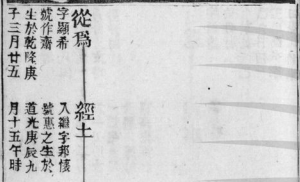 從為
字顯希
號作齋
生於乾隆庚
子三月廿五
經土
入繼字邦懷
號惠之生於
道光庚辰九
月十五午時